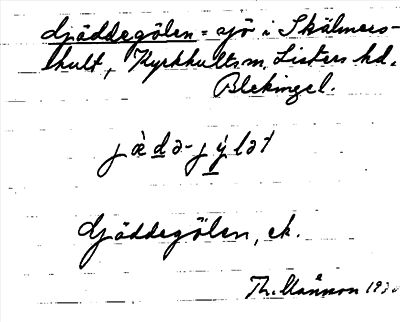 Gjäddegölen = sjö i Skälmers-
hult, Kyrkhults sn, Listers hd.
Blekinge l.
jä̀də-jýlət
Gjäddegölen, ek.
Th. Månson